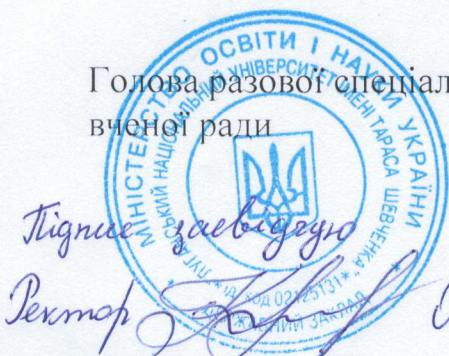 Голова разової спеціал
вченої ради
МІНІСТЕРСТВО ОСВІТИ І НАУКИ УКРАЇНИ
НАЦІОНАЛЬНИЙ УНІВЕРСИТЕТ ІМЕНІ ТАРАСА ШЕВЧЕНКА
код 02125131
ЗАКЛАД
Підпис засвідчую
Ректор